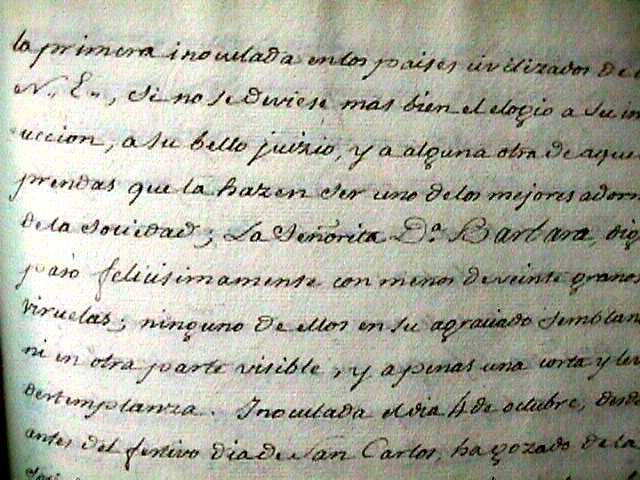 la primera inoculada en los paises civilizados de
N. E., si no se deviese mas bien el elogio a su in
uccion, a su bello juizio, y a alguna otra de aque
prendas que la hazen ser uno de los mejores adorn
de la sociedad; La Señorita D.ª Barbara, dig
pasó felicisimamente con menos de veinte granos
viruelas; ninguno de ellos en su agraciado semblan
ni en otra parte visible, y apenas una corta y le
destemplanza. Inoculada el dia 4 de octubre, desde
antes del festivo dia de San Carlos, ha gozado de la